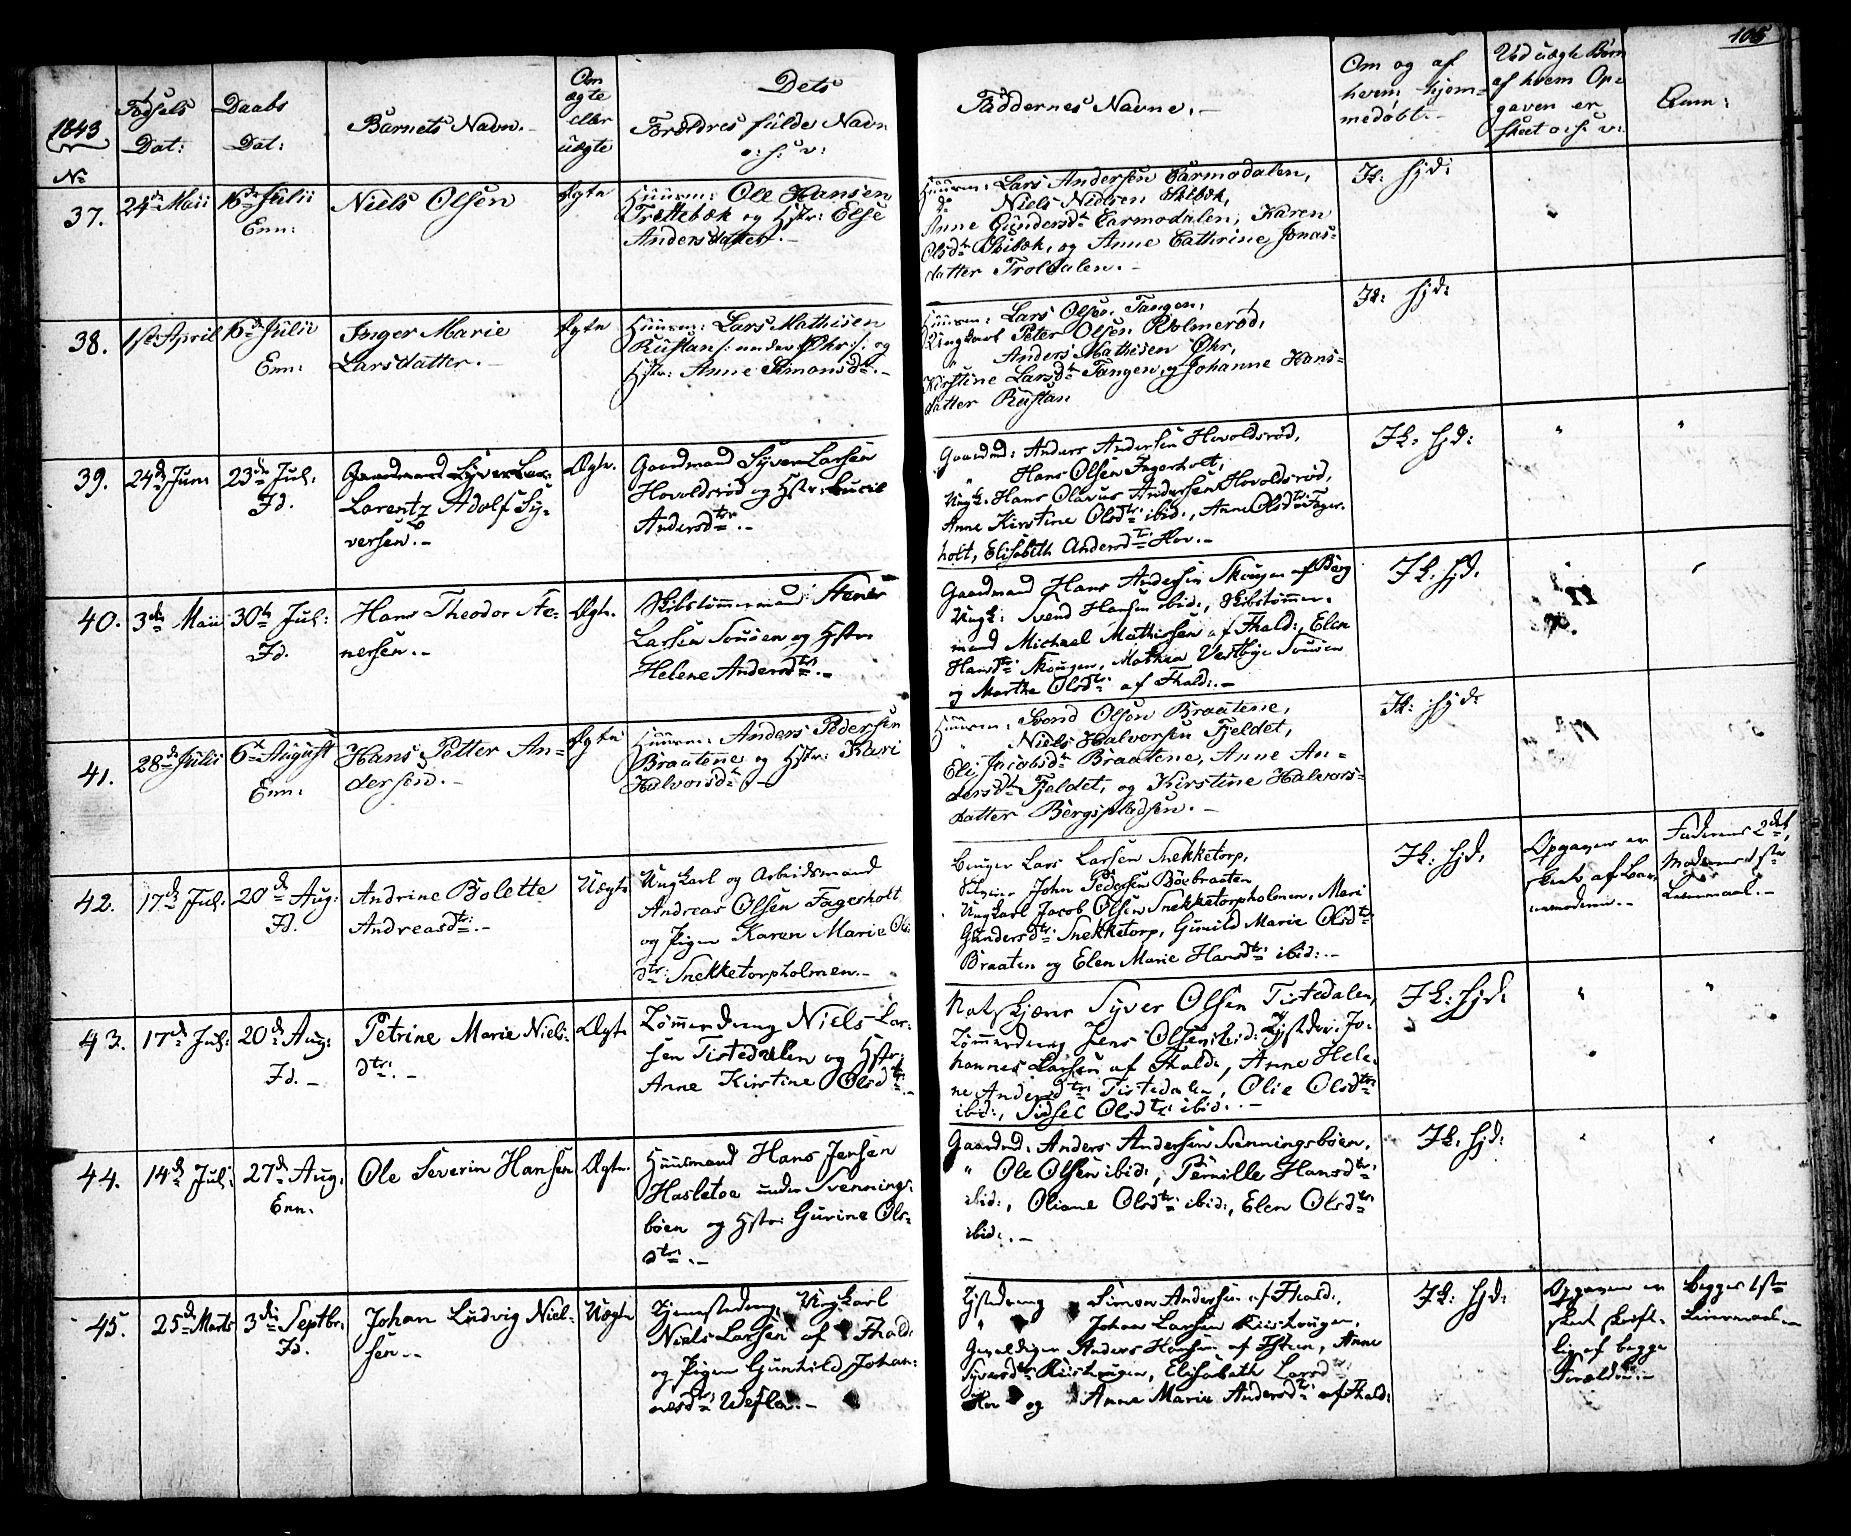 105
1843
No
Fødsels
Dat:
Daabs
Dat:
Barnets Navn.
Om
ægte
eller
uægte
Dets
Forældres fulde Navn
o: s: v:
Faddernes Navne.
Om og af
hvem hjem-
medøbt.
Ved uægte Børn
af hvem Op-
gaven er
skeet o: s: v:
Anm:
37.
24de Maii
16de Julii
Enn:
Niels Olsen
Ægte
Huusm: Ole Hansen
Trættebæk og Hstr: Else
Andersdatter.
Huusm: Lars Andersen Earmodalen,
do Niels Nielsen Skibæk,
Anne Gundersdtr Earmodalen, Karen
Olsdtr Skibæk, og Anne Cathrine Jonas-
datter Troldalen.
Id: Hjd:
38.
1ste April
16de Julii
Enn:
Inger Marie
Larsdatter.
Ægte
Huusm: Lars Mathisen
Rustan /: under Øhr :/ og
Hstr: Anne Simonsdtr.
Huusm: Lars Olsen Tangen,
Ungkarl Peter Olsen Holmerød,
Anders Mathisen Øhr,
Kirstine Larsdtr Tangen, og Johanne Hans-
datter Rustan
Id: Hjd:
39.
24de Juni
23de Jul.
Id.
Gaardmand Syver Lar-
Lorentz Adolf Sy-
versen.
Ægte.
Gaardmand Syver Larsen
Hovoldsrød og Hstr: Lucie
Andersdtr.
Gaardmd: Anders Andersen Hovoldsrød,
" Hans Olsen Fagerholt,
Ungk: Hans Olavus Andersen Hovoldsrød,
Anne Kirstine Olsdtr ibid:, Anne Olsdtr Fager-
holt, Elisabeth Andersdtr Hov.
Ik: Hjd:
40.
3die Maii
30te Jul:
Id.
Hans Theodor Ste-
nersen.
Ægte.
Skibstømmermand Stener
Larsen Sousen og Hstr:
Helene Andersdtr.
Gaardmand Hans Andersen Skougen af Berg
Ungk: Svend Hansen ibid:, Skibstømmer-
mand Michael Mathissen af Fhald:, Elen
Hansdtr Skougen, Mathea Vestbye Sousen
og Marthe Olsdtr af Fhald:.
Ik. Hjd.
41.
28de Julii
6te August
Enn:
Hans Petter An-
dersen.
Ægte
Huusm: Anders Pedersen
Braatene og Hstr: Kari
Halvorsdtr.
Huusm: Svend Olsen Braatene,
" Niels Halvorsen Fjeldet,
Eli Jacobsdtr Braatene, Anne An-
dersdtr Fjeldet, og Kirstine Halvors-
datter Bergspladsen.
Ik: Hjd:
42.
17de Jul.
20de Aug:
Id.
Andrine Bolette
Andreasdtr.
Uægte
Ungkarl og Arbeidsmand
Andreas Olsen Fagerholt
og Pigen Karen Marie Ols-
dtr: Snekketorpholmen.
Bruger Lars Larsen Snekketorp,
John Pedersen Böebraaten
Ungkarl Jacob Olsen Snekketorpholmen, Mari
Gundersdtr Snekketorp, Gunild Marie Olsdtr
Braaten og Elen Marie Hansdtr ibid:.
Ik: Hjd.
Opgaven er
skeet af Bar-
nemoderen.
Faderens 2det,
Moderens 1ste
Leiermaal.
43.
17de Jul:
20de Aug:
Id.
Petrine Marie Niels-
dtr:.
Ægte
Tømmerdreng Niels Lar-
sen Tistedalen og Hstr:
Anne Kirstine Olsdtr.
Natskjører Syver Olsen Tistedalen,
Tømmerdreng Jens Olsen ibid: Tjstedr: Jo-
hannes Larsen af Fhald:, Anne Hele-
ne Andersdtr Tistedalen, Olie Olsdtr
ibid:, Sidsel Olsdtr ibid:.
Ik: Hjd:
44.
14de Jul:
27de Aug:
Enn.
Ole Severin Hansen
Ægte.
Huusmand Hans Jensen
Hasletoe under Svennings-
böen og Hstr: Gurine Ols-
dtr:.
Gaardmd: Anders Andersen Svenningsböen,
" Ole Olsen ibid:, Pernille Hansdtr
ibid:, Oliane Olsdtr ibid:, Elen Olsdtr
ibid:.
Ik. Hjd:
45.
25de Marts
3die Septbr:
Id.
Johan Ludvig Niel-
sen.
Uægte
Tjenestedreng, Ungkarl
Niels Larsen af Fhald:
og Pigen Gunhild Johan-
nesdtr Wefle.
Tjstedreng Simon Andersen af Fhald:,
" Johan Larsen
Anders Hansen af Fsteen, Anne
Syversdtr Elisabeth Larsdtr
Hov og Anne Marie Andersdtr af Fhald:
Ik: Hjd:
Opgaven er
skeet skrift-
lig af begge
Forældre.
Begges 1ste
Leiermaal.